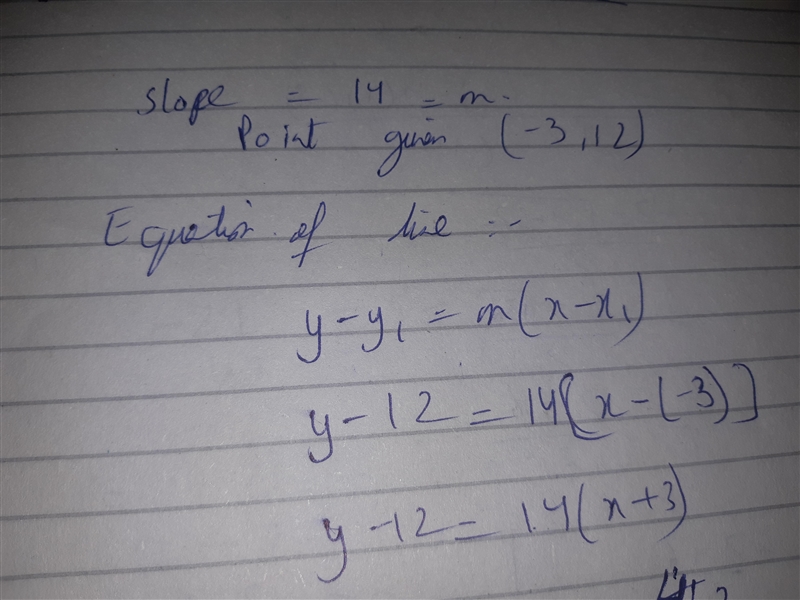 Slope = 14 = m.
Point given (-3, 12)
Equation of line :-
y - y₁ = m(x - x₁)
y - 12 = 14[x - (-3)]
y - 12 = 14(x + 3)